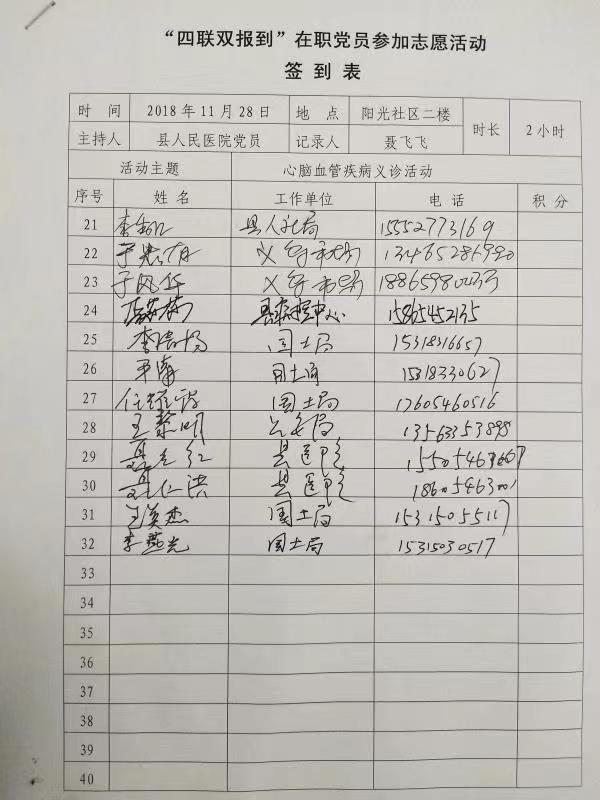 “四联双报到”在职党员参加志愿活动
签到表
时 间 2018年11月28日 地 点 阳光社区二楼 时长 2小时
主持人 县人民医院党员 记录人 聂飞飞
活动主题 心脑血管疾病义诊活动
序号 姓名 工作单位 电话 积分
21 县人社局 15552773169
22 13465286920
23 于风华
24 县疾控中心 15865452135
25 国土局 15318316657
26 国土局 15318330627
27 国土局 17605460516
28 王黎明 公安局 13563353898
29 县医院
30 聂仁洪 县医院
31 王英杰 国土局 15315055117
32 李燕光 国土局 15315030517
33
34
35
36
37
38
39
40